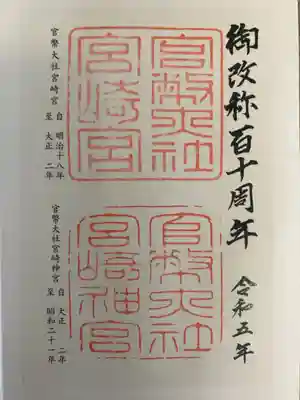 御改称百十周年
令和五年
官幣大社
宮崎宮
官幣大社宮崎宮
自 明治十八年
至 大正 二年
官幣大社
宮崎神宮
官幣大社宮崎神宮
自 大正 二年
至 昭和二十一年